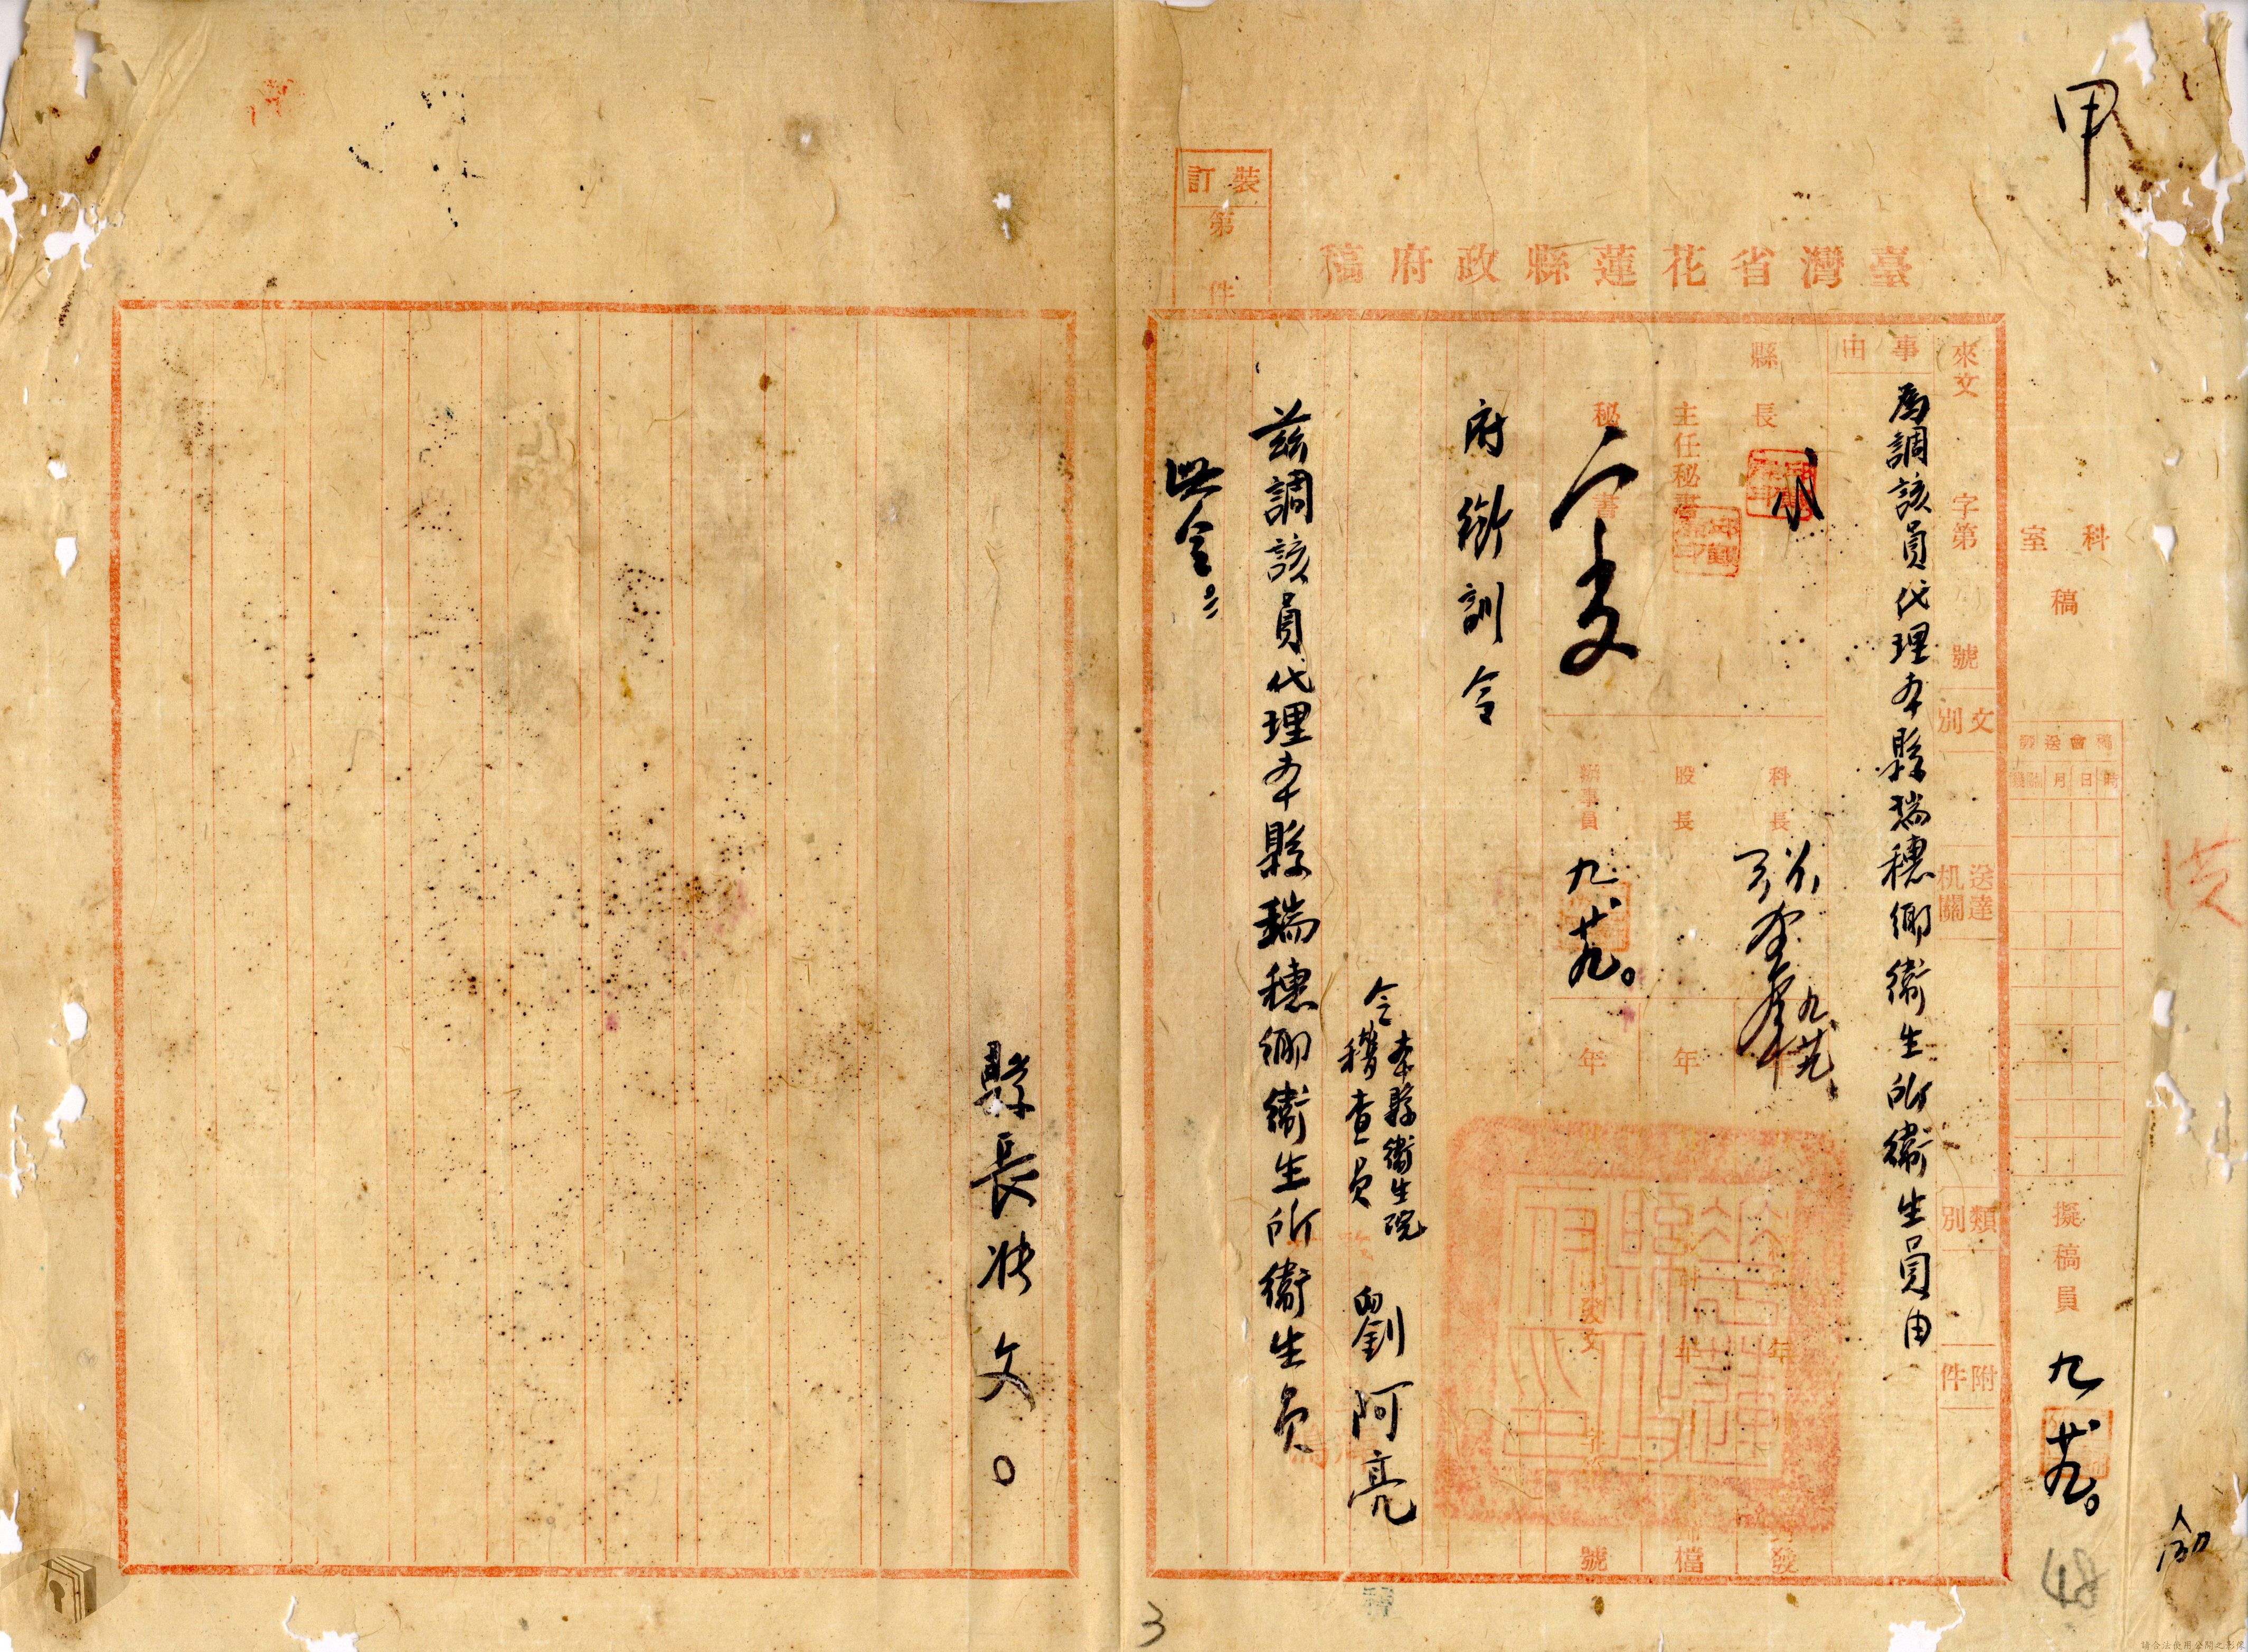 甲
臺灣省花蓮縣政府稿
裝訂
第
件
科室稿
稿會送發
時日月
擬稿員
九 廿九。
來文
字第
號
文別
送達机關
類別
附件
事由
為調該員代理本縣瑞穗鄉衛生所衛生員由
縣長
主任秘書
秘書
科長
九 廿九
股長
辦事員
九 廿九。
年
年
年
年
發文
發
檔
號
府銜訓令
令本縣衛生院稽查員 劉阿亮
茲調該員代理本縣瑞穗鄉衛生所衛生員
此令。
縣長 张 文 。
3
48
請合法使用公開之影像